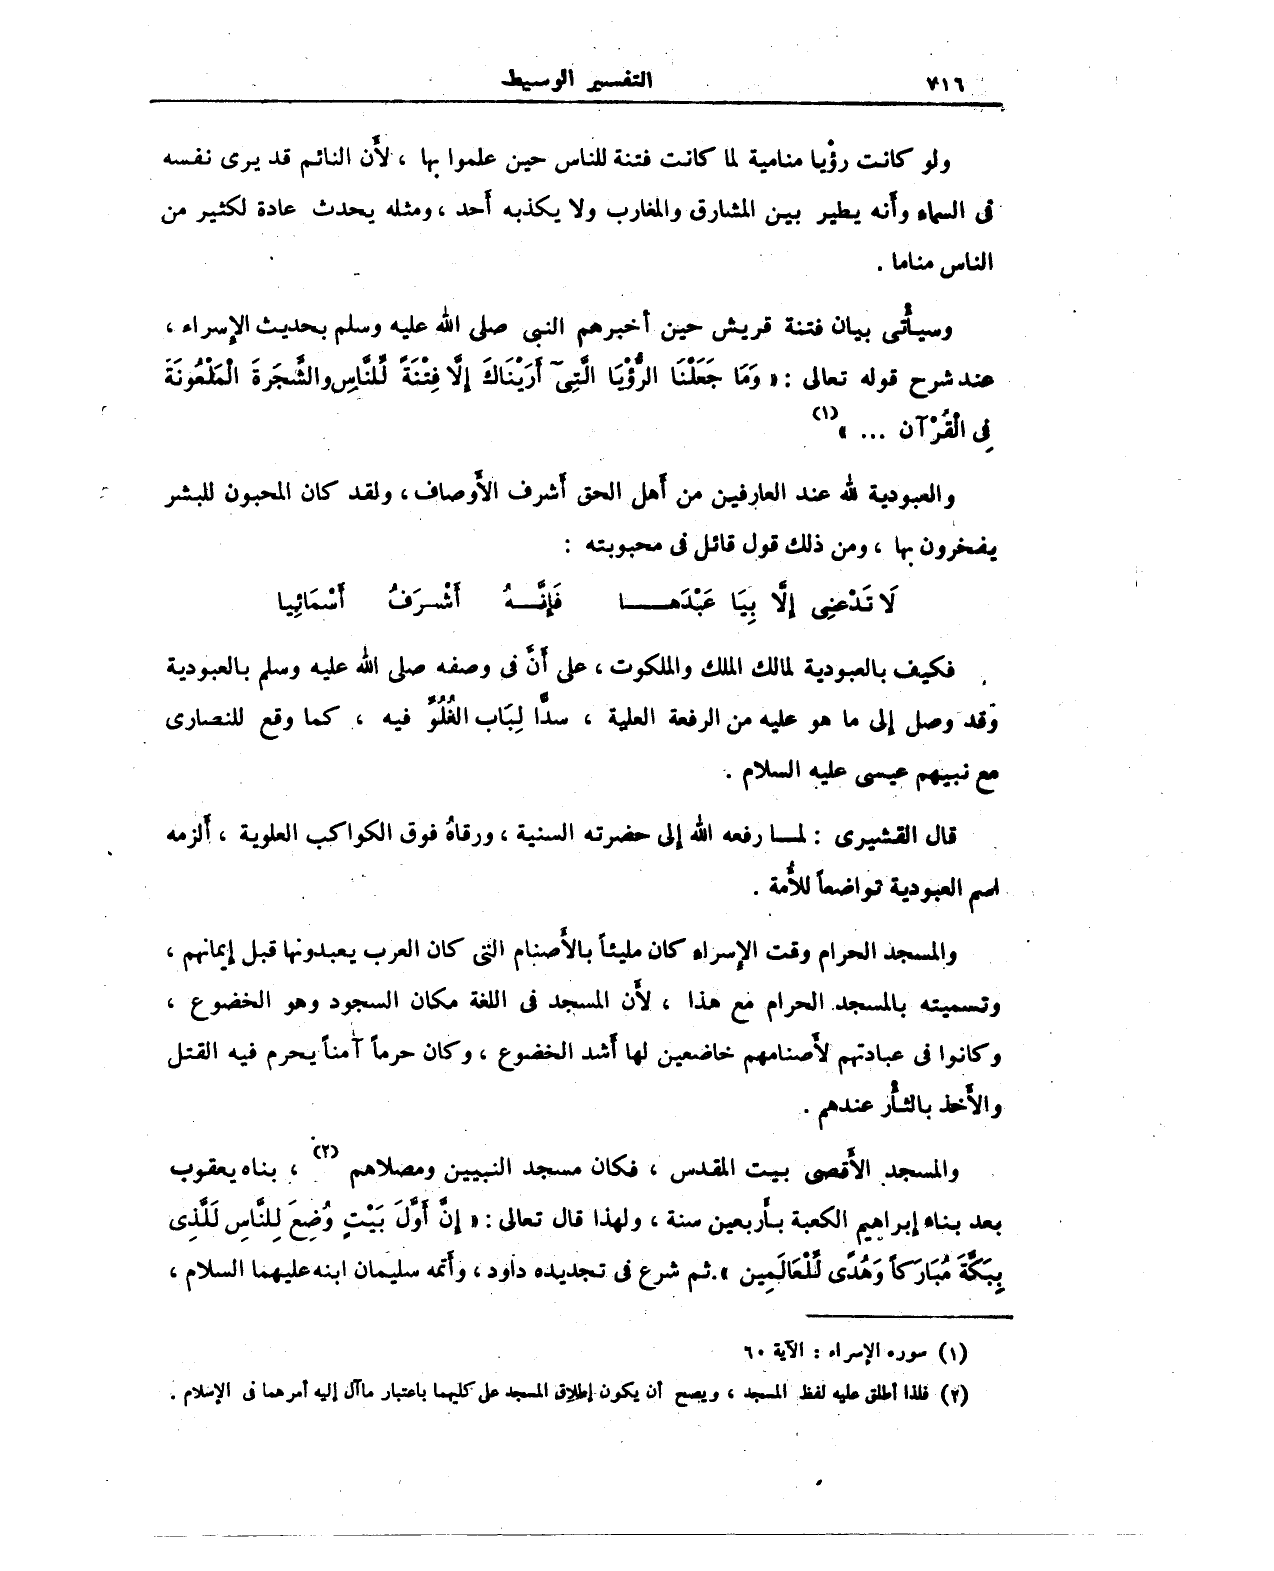 ٧١٦ التفسير الوسيط
ولو كانت رؤْيا منامية لما كانت فتنة للناس حين علموا بها ، لأَن النائم قد يرى نفسه
فى السماء وأَنه يطير بين المشارق والمغارب ولا يكذبه أَحد ، ومثله يحدث عادة لكثير من
الناس مناما .
وسيأْتى بيان فتنة قريش حين أخبرهم النبى صلى الله عليه وسلم بحديث الإسراء ،
عند شرح قوله تعالى : « وَمَا جَعَلْنَا الرُّؤْيَا الَّتِىٓ أَرَيْنَاكَ إِلَّا فِتْنَةً لِّلنَّاسِ والشَّجَرَةَ الْمَلْعُونَةَ
فِى الْقُرْآن ... »(١)
والعبودية لله عند العارفين من أَهل الحق أَشرف الأَوصاف ، ولقد كان المحبون للبشر
يفخرون بها ، ومن ذلك قول قائل فى محبوبته :
لَا تَدْعنِى إِلَّا بِيَا عَبْدَهـــا فَإِنَّـــهُ أَشْـرَفُ أَسْمَائِيا
فكيف بالعبودية لمالك الملك والملكوت ، على أَنَّ فى وصفه صلى الله عليه وسلم بالعبودية
وَقد وصل إلى ما هو عليه من الرفعة العلية ، سدًّا لِبَاب الغُلُوِّ فيه ، كما وقع للنصارى
مع نبيهم عيسى عليه السلام .
قال القشيرى : لمــا رفعه الله إلى حضرته السنية ، ورقاهُ فوق الكواكب العلوية ، أَلزمه
اسم العبودية تواضعاً للأُمة .
والمسجد الحرام وقت الإسراء كان مليئاً بالأَصنام التى كان العرب يعبدونها قبل إيمانهم ،
وتسميته بالمسجد الحرام مع هذا ، لأَن المسجد فى اللغة مكان السجود وهو الخضوع ،
وكانوا فى عبادتهم لأَصنامهم خاضعين لها أَشد الخضوع ، وكان حرماً آمناً يحرم فيه القتل
والأَخذ بالثأْر عندهم .
والمسجد الأَقصى بيت المقدس ، فكان مسجد النبيين ومصلاهم (٢) ، بناه يعقوب
بعد بناء إبراهيم الكعبة بأَربعين سنة ، ولهذا قال تعالى : « إِنَّ أَوَّلَ بَيْتٍ وُضِعَ لِلنَّاسِ لَلَّذِى
بِبَكَّةَ مُبَارَكاً وَهُدًى لِّلْعَالَمِين ». ثم شرع فى تجديده داود ، وأَتمه سليمان ابنه عليهما السلام ،
(١) سوره الإسراء : الآية ٦٠
(٢) فلذا أطلق عليه لفظ المسجد ، ويصح أن يكون إطلاق المسجد على كليهما باعتبار ماآل إليه أمرهما فى الإسلام .